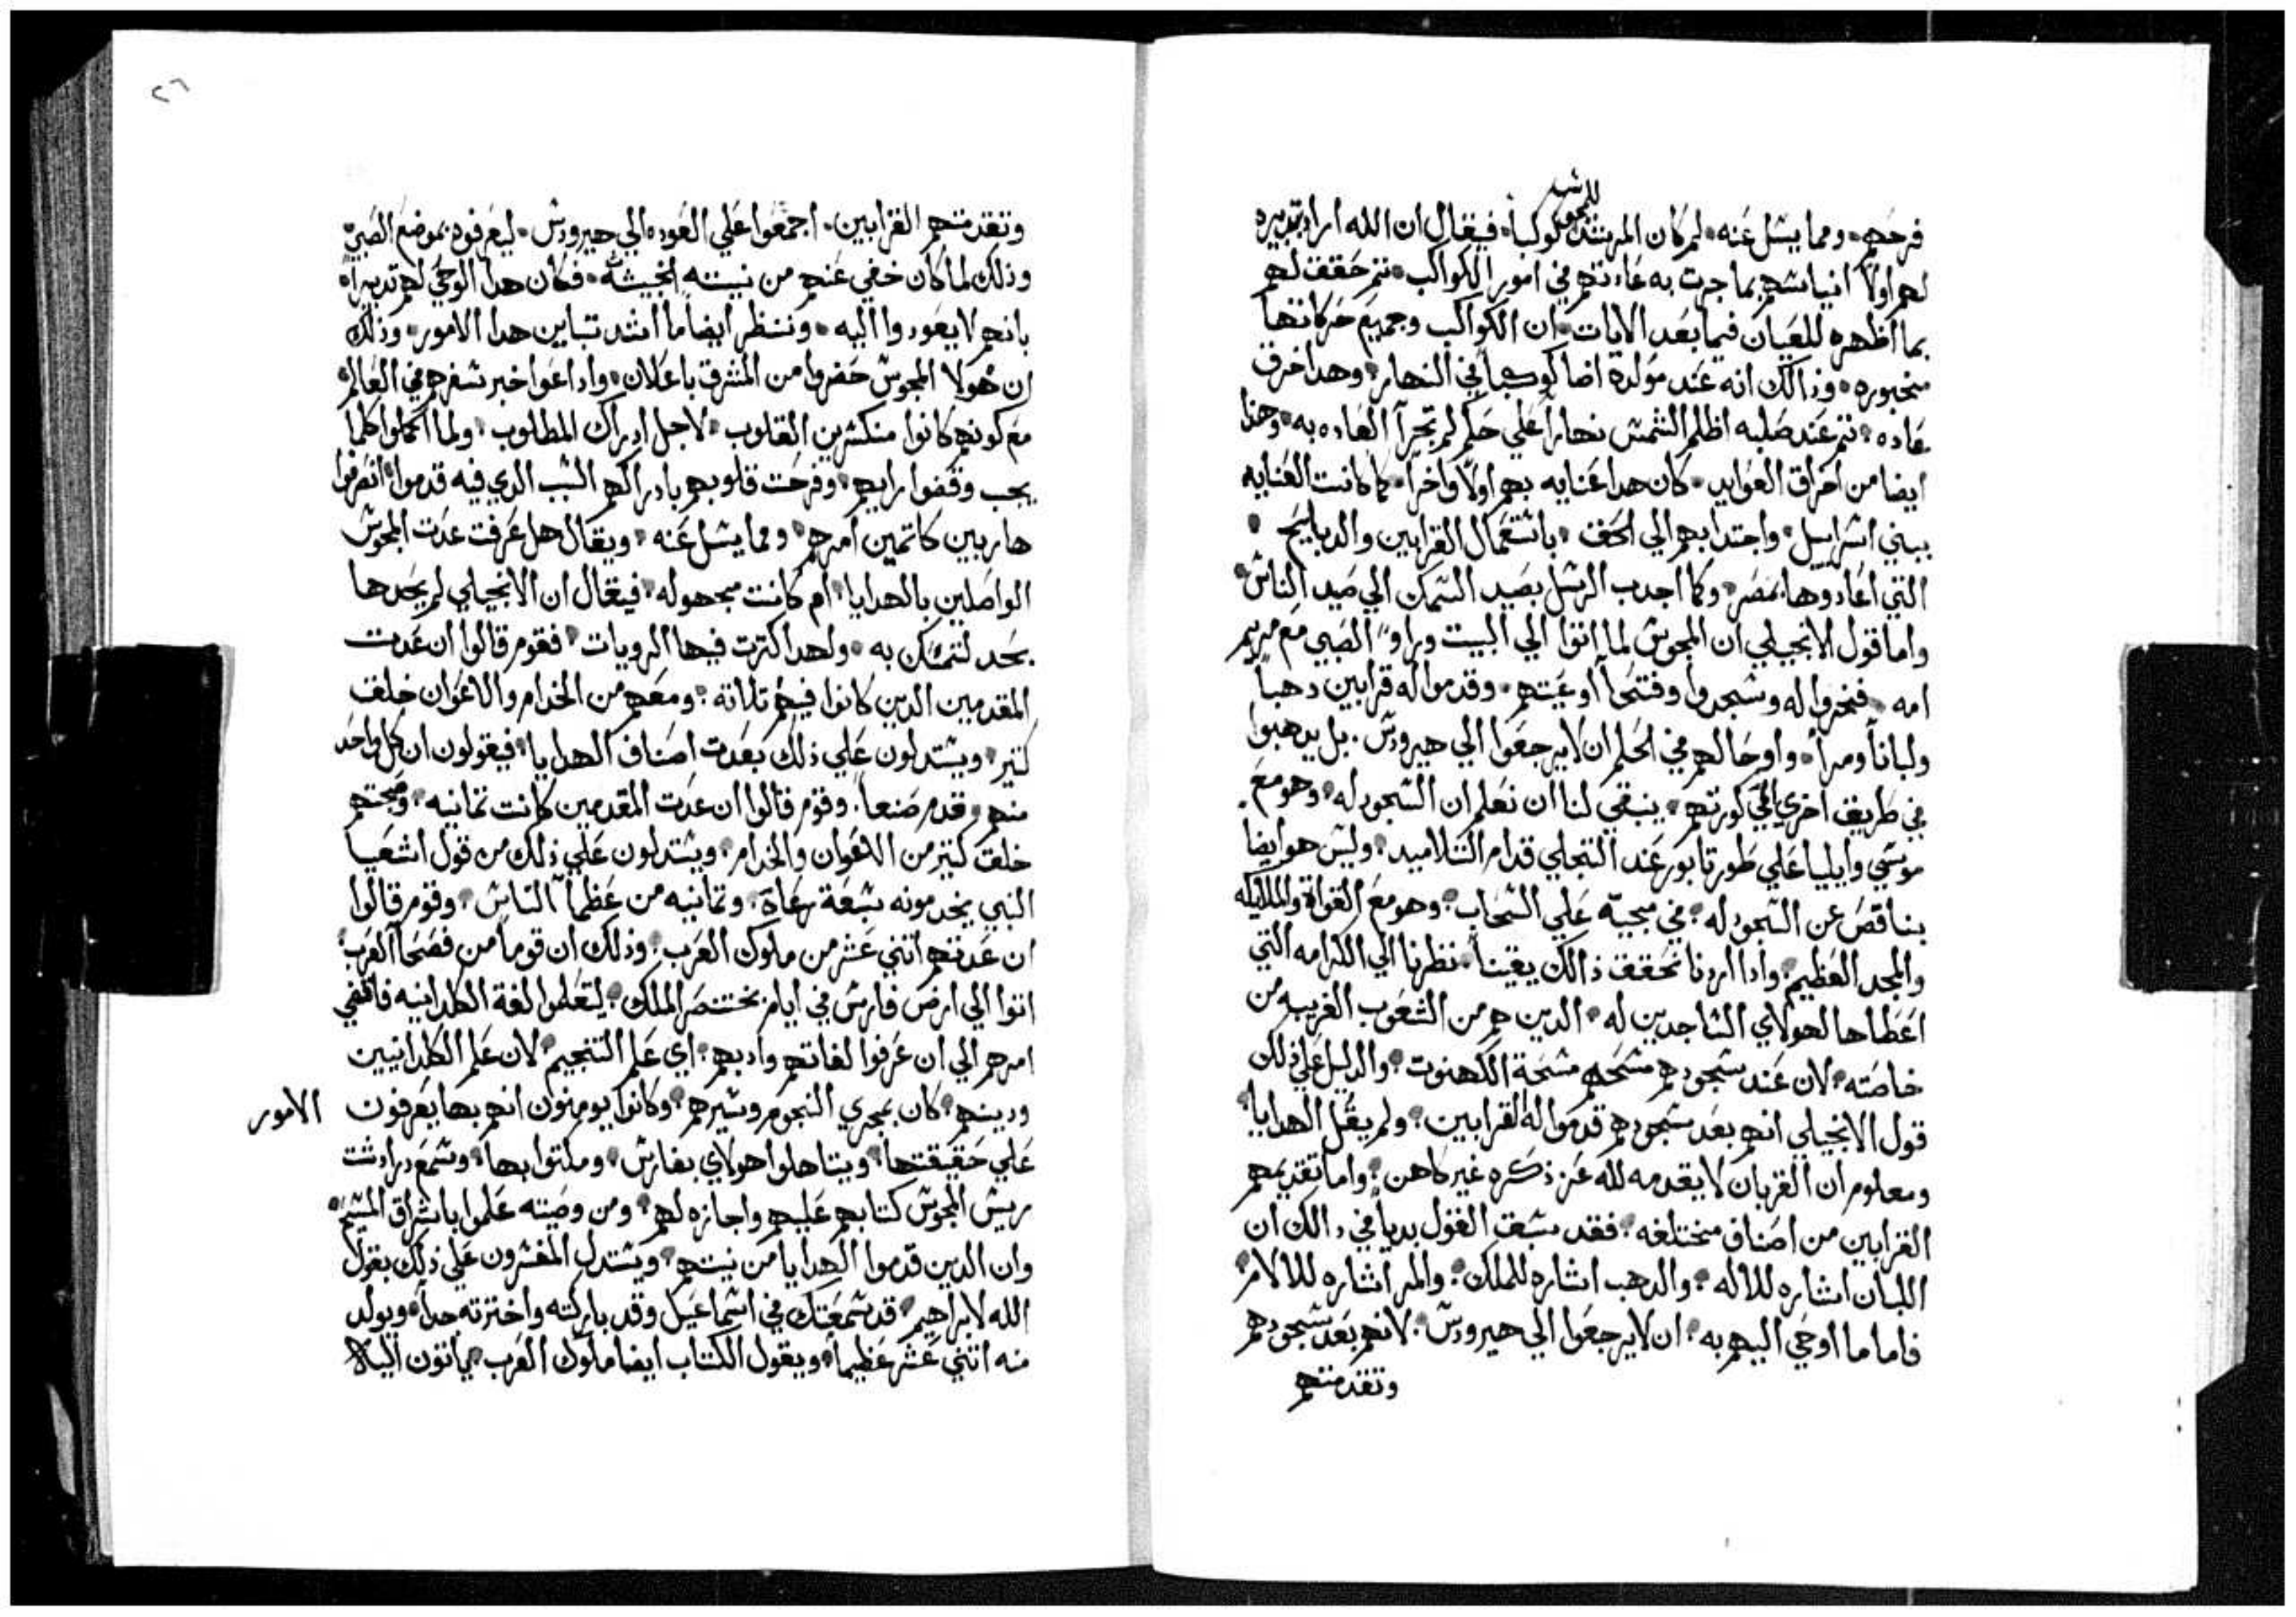 للمجوس
فرحهم ومما يسل عنه لم كان المرشد كوكباً فيقال ان الله اراد بتدبيره
لهم اولاً ايناسهم بما جرت به عادتهم في امور الكواكب تم حقق لهم
بما اظهره للعيان فيما بعد الايات ان الكواكب وجميع حركاتها
مجبوره وذالك انه عند مولده اضا كوكباً في النهار وهدا خرق
عاده تم عند صلبه اظلم الشمس نهاراً علي حكم لم تجرا العاده به وهدا
ايضا من اخراق العوايد كان هدا عنايه بهم اولاً واخراً كما كانت العنايه
ببني اسراييل واجتدابهم الي الحق باستعمال القرابين والدبايح
التي اعتادوها بمصر وكما اجدب الرسل بصيد السمك الي صيد الناس
واما قول الانجيلي ان المجوس لما اتوا الي البيت وراوا الصبي مع مريم
امه فخروا له وسجدوا وفتحا اوعيتهم وقدموا له قرابين دهباً
ولباناً ومراً واوحا لهم في الحلم ان لا يرجعوا الي هيرودس بل يدهبوا
في طريق اخري الي كورتهم ينبغي لنا ان نعلم ان السجود له وهو مع
موسي وايليا علي طور تابور عند التجلي قدام التلاميد وليس هو ايضا
بناقص عن السجود له في مجيه علي السحاب وهو مع القواة والملايكه
والمجد العظيم وادا اردنا نحقق ذالك يقيناً نظرنا الي الكرامه التي
اعطاها لهولاي الساجدين له الدين هم من الشعوب الغريبه من
خاصته لان عند سجودهم مسحهم مسحة الكهنوت والدليل علي ذلك
قول الانجيلي انهم بعد سجودهم قدموا له القرابين ولم يقل الهدايا
ومعلوم ان القربان لا يقدمه لله عز ذكره غير كاهن واما تقديمهم
القرابين من اصناف مختلفه فقد سبق القول بدياً في دالك ان
اللبان اشاره للاله والدهب اشاره للملك والمر اشاره للالام
فاما ما اوحي اليهم به ان لا يرجعوا الي هيرودس لانهم بعد سجودهم
وتقدمتهم
٢٦
وتقدمتهم القرابين اجمعوا علي العوده الي هيرودس ليعرفوه بموضع الصبي
وذلك لما كان خفي عنهم من نيته الخبيثه فكان هدا الوحي لهم تدبيراً
بانهم لا يعودوا اليه وننظر ايضا ما اشد تباين هدا الامور وذلك
ان هولا المجوس حضروا من المشرق باعلان واداعوا خبر سفرهم في العالم
مع كونهم كانوا منكسرين القلوب لاجل ادراك المطلوب ولما اكملوا كلما
يجب وقضوا رايهم وفرحت قلوبهم بادراكهم السبب الدي فيه قدموا انصرفوا
هاربين كاتمين امرهم ومما يسل عنه ويقال هل عرفت عدت المجوس
الواصلين بالهدايا ام كانت مجهوله فيقال ان الانجيلي لم يحدها
بحد لنتمسك به ولهدا كترت فيها الرويات فقوم قالوا ان عدت
المقدمين الدين كانوا فيهم تلاته ومعهم من الخدام والاعوان خلق
كتير ويستدلون علي ذلك بعدت اصناف الهدايا فيقولون ان كل واحد
منهم قدم صنعاً وقوم قالوا ان عدت المقدمين كانت تمانيه وصحبتهم
خلق كتير من الاعوان والخدام ويستدلون علي ذلك من قول اشعيا
النبي يخدمونه سبعة رعاة وتمانيه من عظما الناس وقوم قالوا
ان عدتهم اتني عشر من ملوك العرب وذلك ان قوماً من فصحا العرب
اتوا الي ارض فارس في ايام بختنصر الملك ليتعلموا لغة الكلدانيه فافضي
امرهم الي ان عرفوا لغاتهم وادبهم اي علم التنجيم لان علم الكلدانيين
ودينهم كان بمجري النجوم وسيرهم وكانوا يومنون انهم بها يعرفون الامور
علي حقيقتها ويتاهلوا هولاي بفارس ومكتوا بها وسمع درادشت
ريس المجوس كتابهم عليهم واجازه لهم ومن وصيته علموا باشراق المسيح
وان الدين قدموا الهدايا من نيتهم ويستدل المفسرون علي ذلك بقول
الله لابراهيم قد سمعتك في اسماعيل وقد باركته واخترته جداً ويولد
منه اتني عشر عظيماً ويقول الكتاب ايضا ملوك العرب ياتون اليه